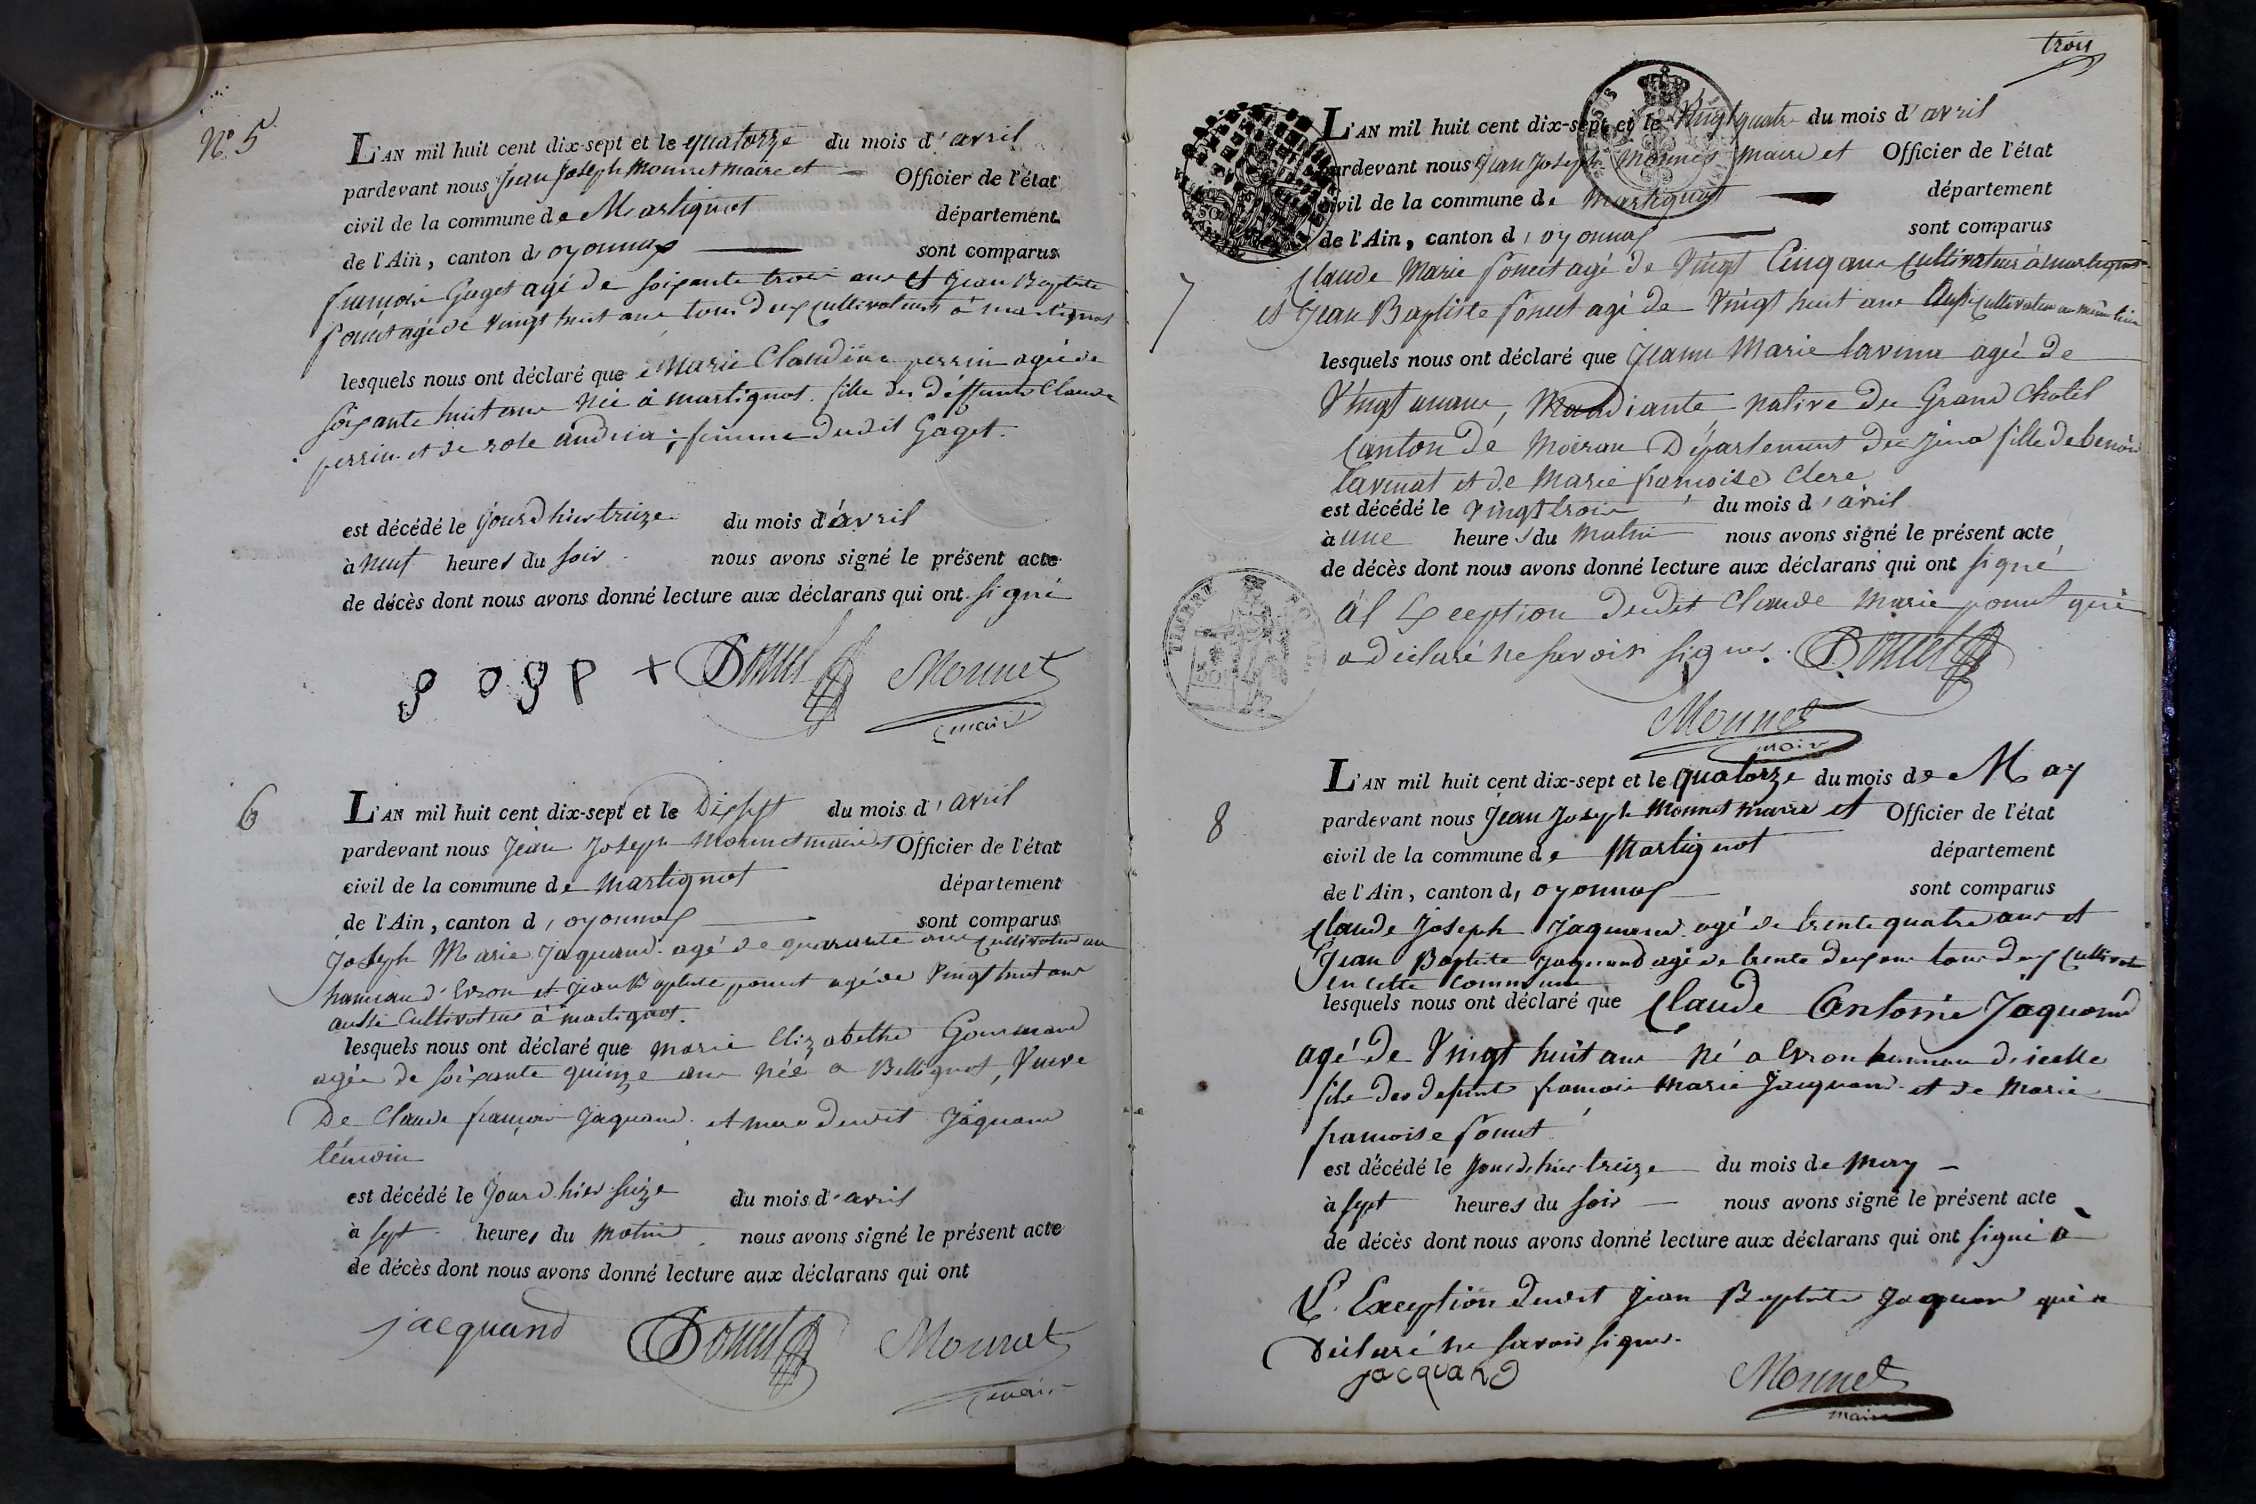 N.° 5
L'AN mil huit cent dix-sept et le quatorze du mois d'avril
pardevant nous Jean Joseph Monnet maire et Officier de l'état
civil de la commune de Martignat département
de l'Ain, canton d'oyonnax sont comparus
françois Gaget agé de soixante trois ans et Jean Baptiste
ponut agé de vingt huit ans tous deux cultivateurs à martignat
lesquels nous ont déclaré que Marie Claudine perrin agée de
soixante huit ans née à martignat fille des deffunts Claude
perrin et de rose andréa; femme dudit Gaget.
est décédé le Jourd'hier treize du mois d'avril
à neuf heures du soir nous avons signé le présent acte
de décès dont nous avons donné lecture aux déclarans qui ont signé
Ponut Monnet
maire
6
L'AN mil huit cent dix-sept et le Dixsept du mois d'avril
pardevant nous Jean Joseph Monnet maire et Officier de l'état
civil de la commune de Martignat département
de l'Ain, canton d'oyonnax sont comparus
Joseph Marie Jaquand agé de quarante ans cultivateur au
hameau d'Evron et Jean Baptiste ponut agé de vingt huit ans
aussi Cultivateur à martignat.
lesquels nous ont déclaré que marie Elizabethe Gourmand
agée de soixante quinze ans née a Bellignat, veuve
De Claude françois Jaquand et mere dudit Jaquand
témoin
est décédé le Jourd'hier seize du mois d'avril
à sept heures du matin nous avons signé le présent acte
de décès dont nous avons donné lecture aux déclarans qui ont
jacquand Ponut Monnet
maire
trois
L'AN mil huit cent dix-sept et le Vingt quatre du mois d'avril
pardevant nous Jean Joseph Monnet maire et Officier de l'état
civil de la commune de Martignat département
de l'Ain, canton d'oyonnax sont comparus
7
Claude Marie ponut agé de Vingt Cinq ans cultivateur à martignat
et Jean Baptiste ponut agé de Vingt huit ans Aussi cultivateur au même lieu
lesquels nous ont déclaré que Jeanne Marie lavina agée de
Vingt un ans, Mandiante native du Grand Chatel
Canton de Moiran Département du Jura fille de benoit
lavinat et de Marie françoise Clere
est décédé le vingt trois du mois d'avril
à une heures du Matin nous avons signé le présent acte
de décès dont nous avons donné lecture aux déclarans qui ont signé
à l'Exception dudit Claude Marie ponut qui
a déclaré ne savoir signer. Ponut
Monnet
maire
L'AN mil huit cent dix-sept et le quatorze du mois de May
8
pardevant nous Jean Joseph Monnet maire et Officier de l'état
civil de la commune de Martignat département
de l'Ain, canton d'oyonnax sont comparus
Claude Joseph Jaquand agé de trente quatre ans et
Jean Baptiste Jaquand agé de trente deux ans tous deux Cultivateurs
en cette Commune
lesquels nous ont déclaré que Claude Antoine Jaquand
agé de Vingt huit ans né a Evron hameau d'icelle
fils des defunts françois Marie Jaquand et de Marie
françoise Ponut
est décédé le Jourd'hier treize du mois de may
à sept heures du soir nous avons signé le présent acte
de décès dont nous avons donné lecture aux déclarans qui ont signé à
L'Exception dudit Jean Baptiste Jaquand qui a
déclaré ne savoir signer.
jacquand Monnet
maire